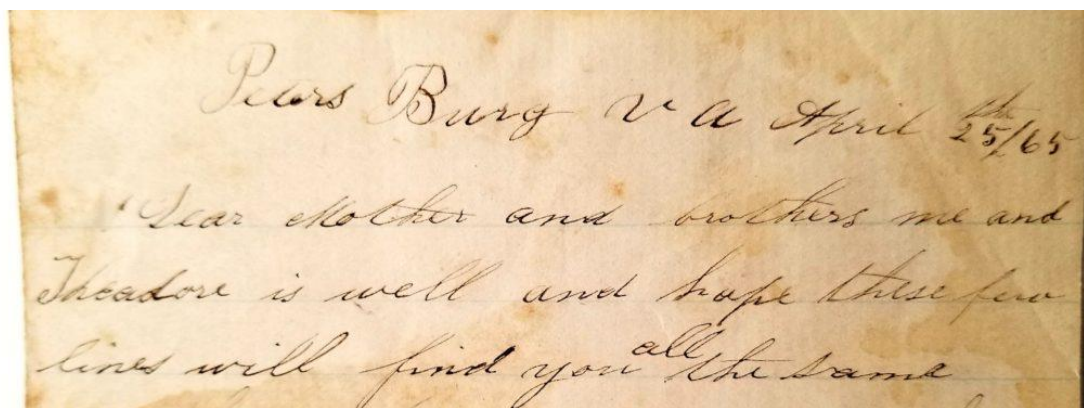 Peters Burg V A April 25th/65
Dear Mother and brothers me and
Theadore is well and hope these few
lines will find you all the same